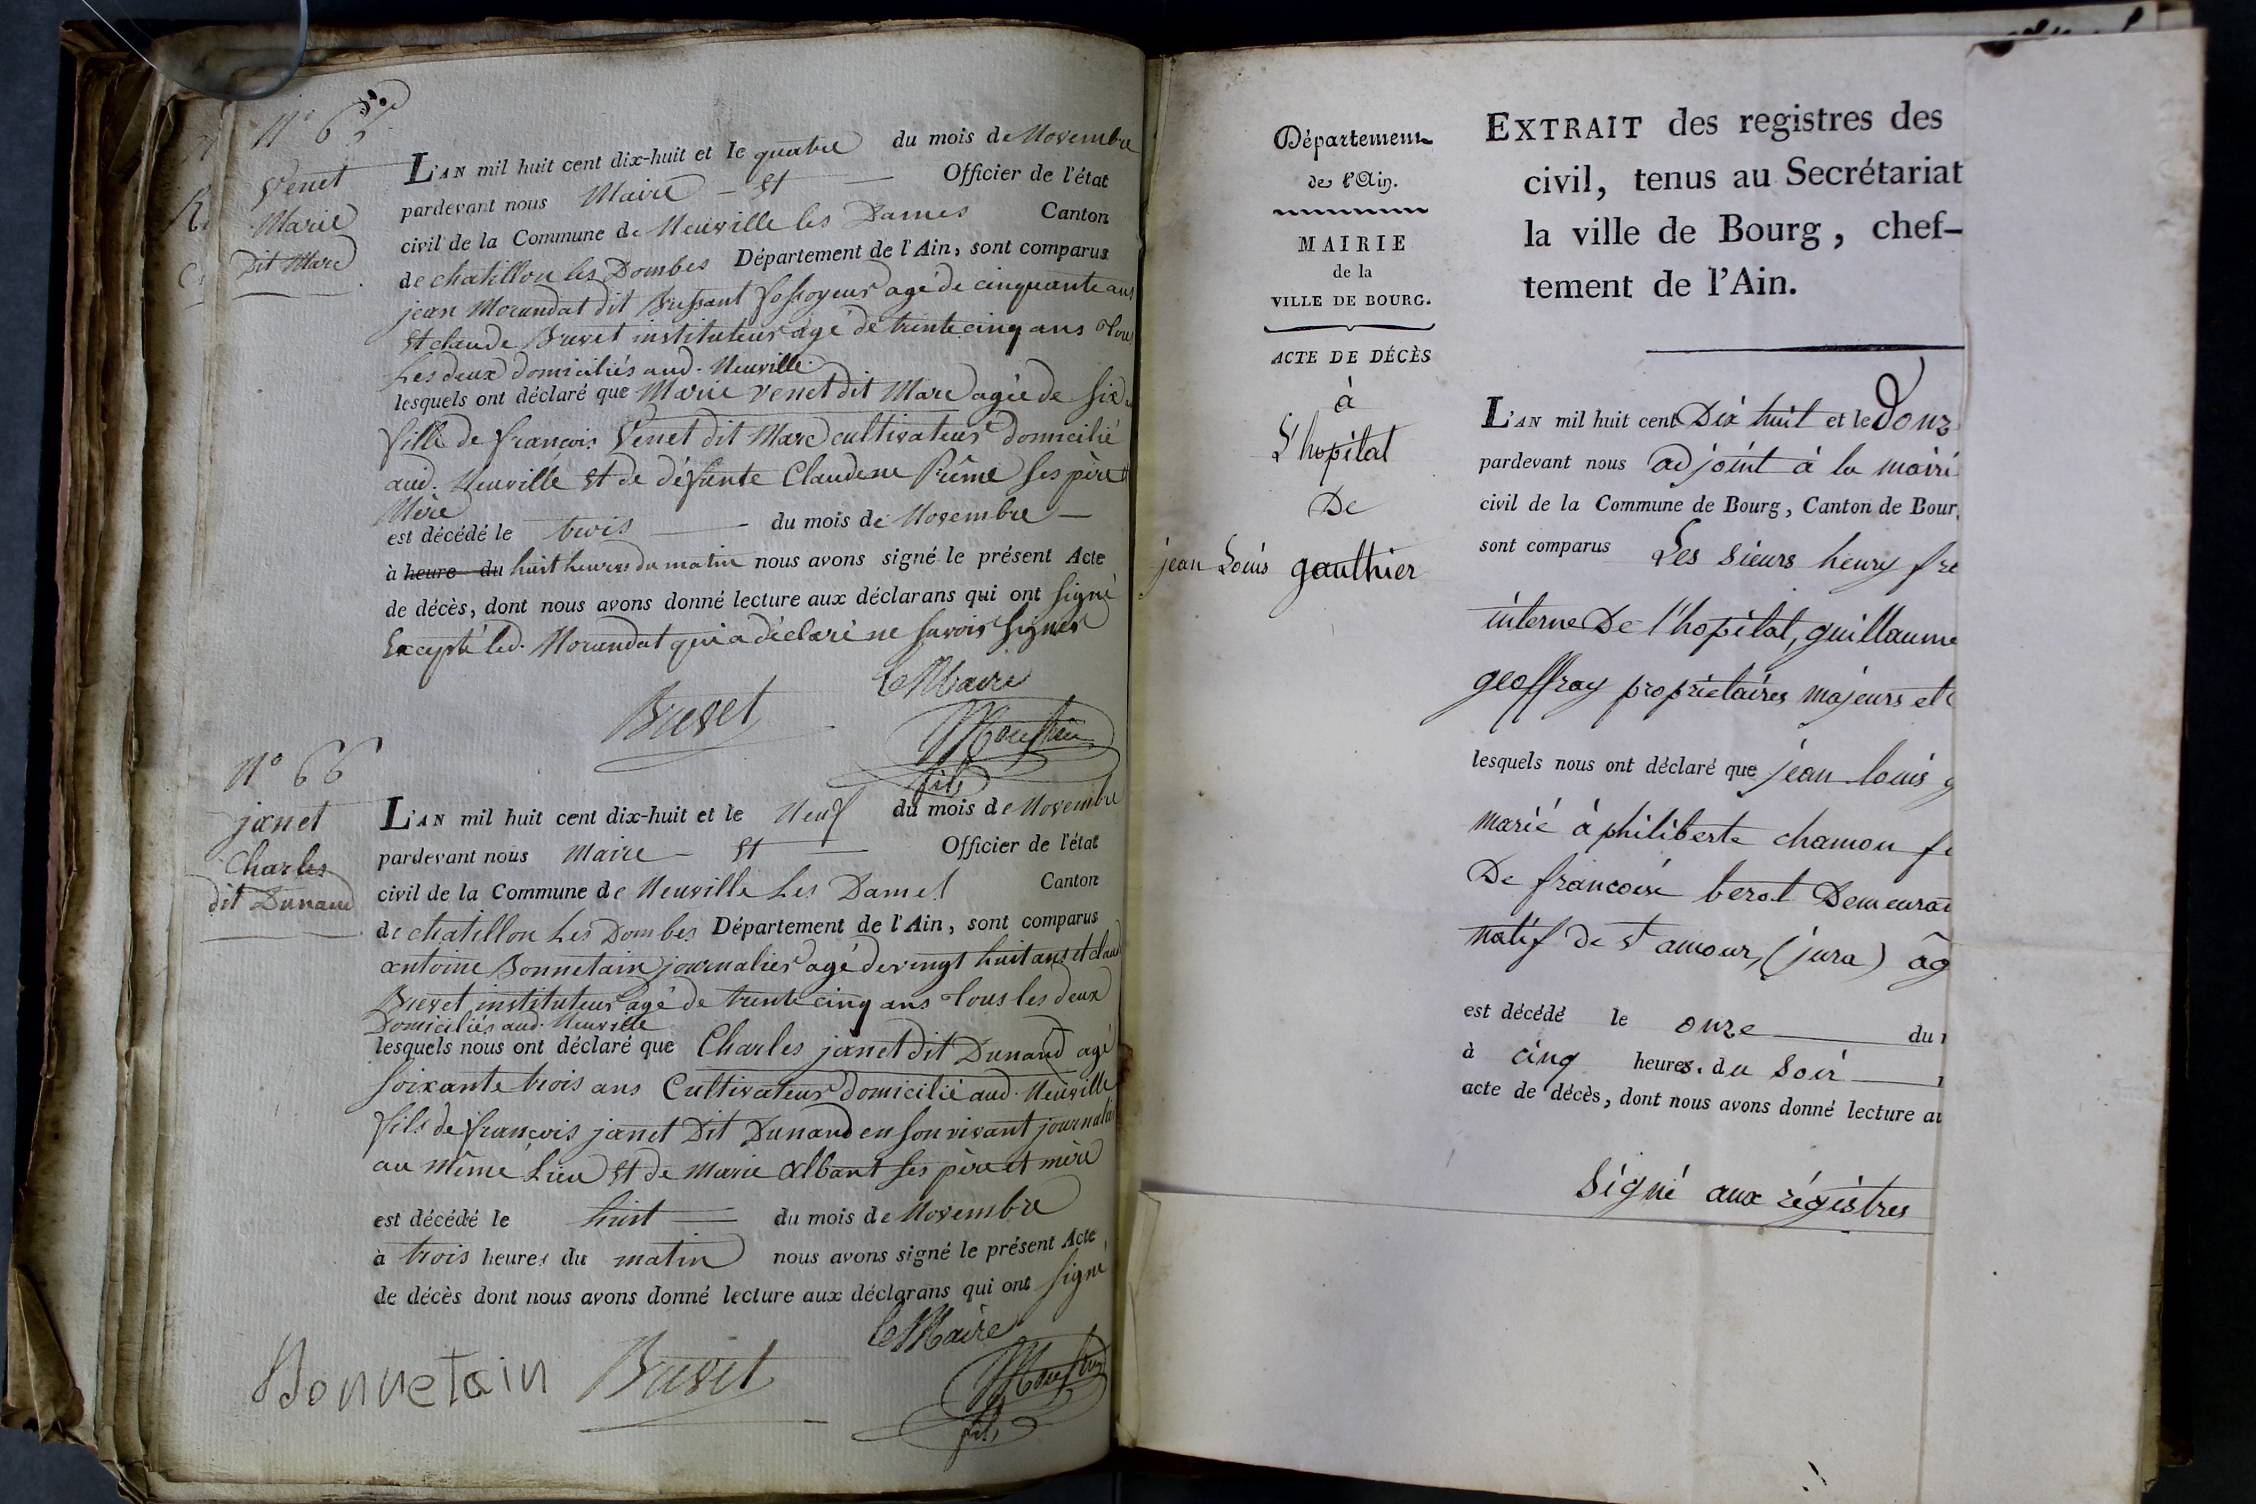 N° 65
Venet
Marie
Dit Marc
L'AN mil huit cent dix-huit et le quatre du mois de Novembre
pardevant nous Maire - Et - Officier de l'état
civil de la Commune de Neuville les Dames Canton
de chatillon les Dombes Département de l'Ain, sont comparus
jean Morandat dit Bressant fossoyeur agé de cinquante ans
Et claude Buvet instituteur agé de trente cinq ans Tous
Les deux domiciliés aud. Neuville
lesquels ont déclaré que Marie venet dit Marc agée de six
fille de francois Venet dit Marc cultivateur domicilié
aud. Neuville Et de défunte Claudene ses père et
Mère
est décédé le trois du mois de Novembre
à heure du huit heures du matin nous avons signé le présent Acte
de décès, dont nous avons donné lecture aux déclarans qui ont signé
Excepté led. Morandat qui a déclaré ne savoir signer
le Maire
Buvet
fils
N° 66
janet
Charles
dit Dunand
L'AN mil huit cent dix-huit et le Neuf du mois de Novembre
pardevant nous Maire - Et - Officier de l'état
civil de la Commune de Neuville Les Dames Canton
de chatillon Les Dombes Département de l'Ain, sont comparus
antoine Bonnetain journalier agé de vingt huit ans et claud
Buvet instituteur agé de trente cinq ans Tous les deux
Domiciliés aud. Neuville
lesquels nous ont déclaré que Charles janet dit Dunand agé
soixante trois ans Cultivateur domicilié aud. Neuville
fils de françois janet Dit Dunand en son vivant journalie
au même Lieu Et de Marie Albant ses père et mère
est décédé le huit du mois de Novembre
à trois heures du matin nous avons signé le présent Acte
de décès dont nous avons donné lecture aux déclarans qui ont signé
le Maire
Bonnetain Buvet
fils
Département
de l'Ain.
MAIRIE
de la
VILLE DE BOURG.
ACTE DE DÉCÈS
à
L'hopital
De
jean Louis gauthier
EXTRAIT des registres des
civil, tenus au Secrétariat
la ville de Bourg, chef-
tement de l'Ain.
L'AN mil huit cent Dix huit et le Douz
pardevant nous adjoint à la mairi
civil de la Commune de Bourg, Canton de Bour
sont comparus Les sieurs henry fre
interne De l'hopital, guillaume
geoffray propriétaires majeurs et
lesquels nous ont déclaré que jean louis g
marié à philiberte chamon fi
De francoise berot Demeuran
natif de st amour, (jura) âg
est décédé le onze du
à cinq heures. du soir
acte de décès, dont nous avons donné lecture au
Signé aux régistres